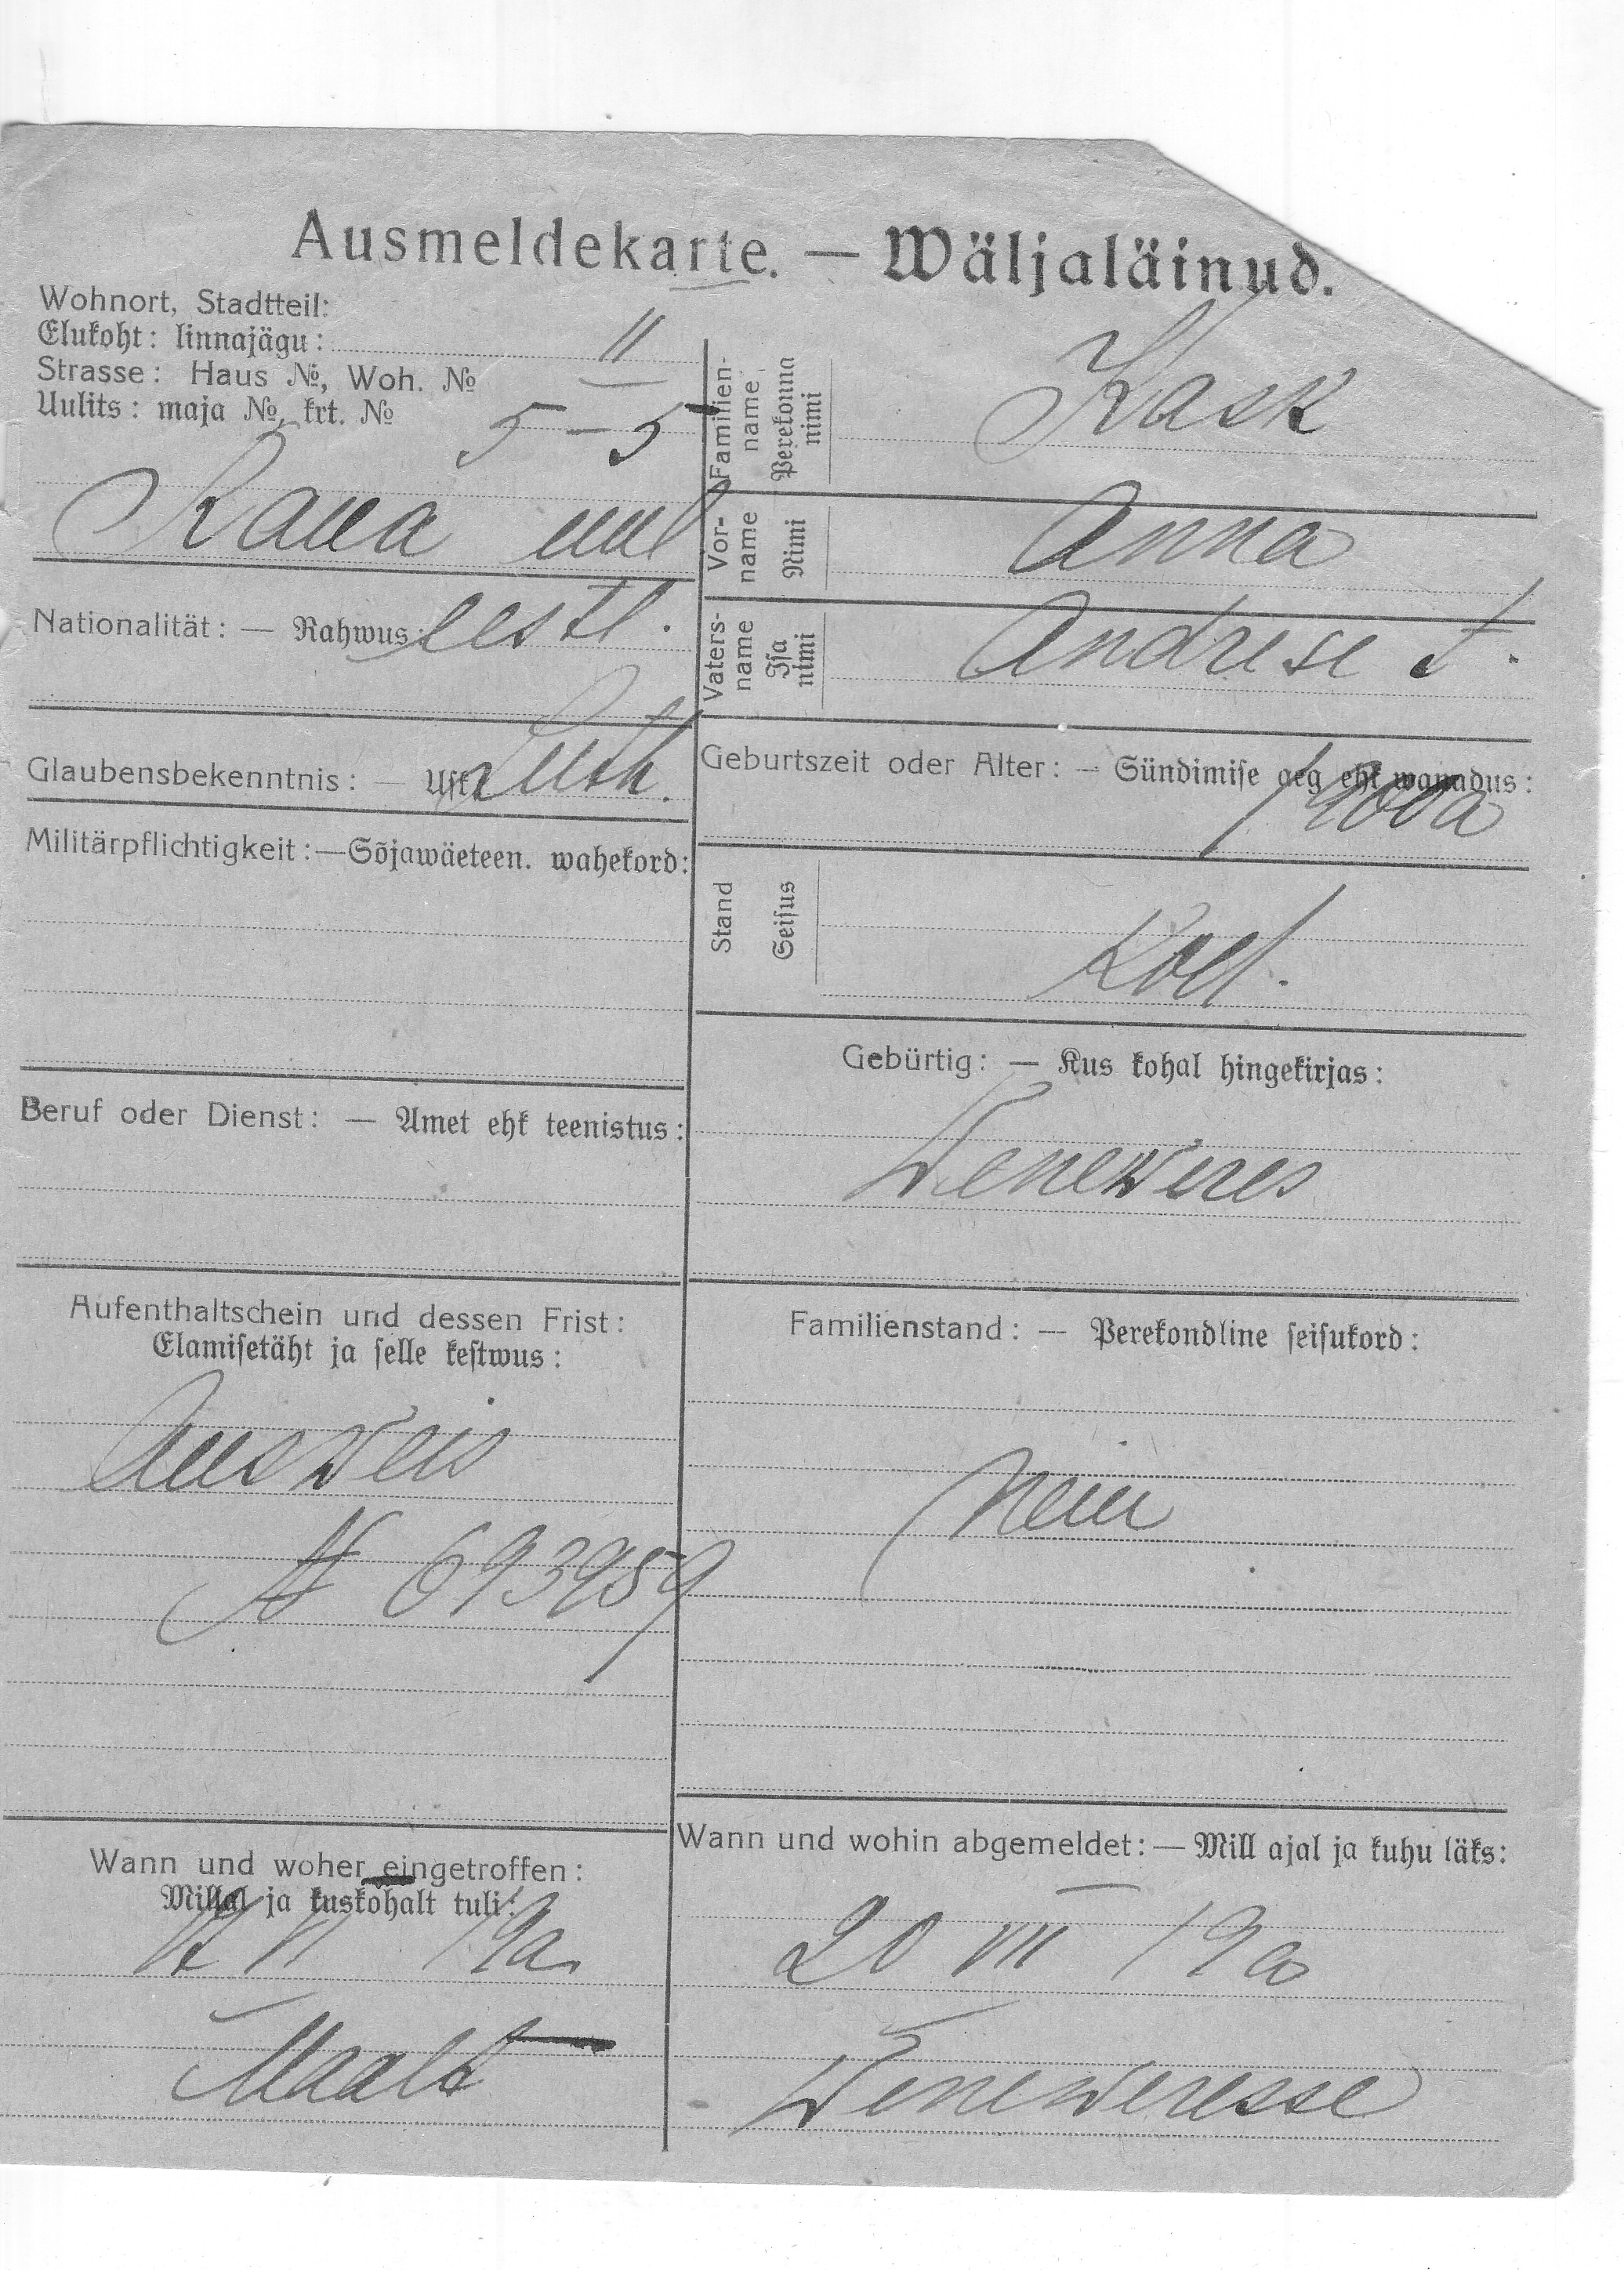 Ausmeldekarte. — Wäljaläinud.
Wohnort, Stadtteil:
Elukoht: linnajägu: II
Strasse: Haus №, Woh. №
Uulits: maja №, krt. № 5–5
Rawa uul
Nationalität: — Rahwus: eestl.
Glaubensbekenntnis: — Usk: Luth.
Militärpflichtigkeit: — Sõjawäeteen. wahekord:
Beruf oder Dienst: — Amet ehk teenistus:
Aufenthaltschein und dessen Frist:
Elamisetäht ja selle kestwus:
Ausweis
№ 693959
Wann und woher eingetroffen:
Millal ja kuskohalt tuli:
VI 19a.
Maalt
Familien-
name
Perekonna
nimi
Kask
Vor-
name
Nimi
Anna
Vaters-
name
Isa
nimi
Andrese t.
Geburtszeit oder Alter: — Sündimise aeg ehk wanadus:
1900a
Stand
Seisus
Gebürtig: — Kus kohal hingekirjas:
Weneweres
Familienstand: — Perekondline seisukord:
Neiu
Wann und wohin abgemeldet: — Mill ajal ja kuhu läks:
20 VII 19a
Weneweresse